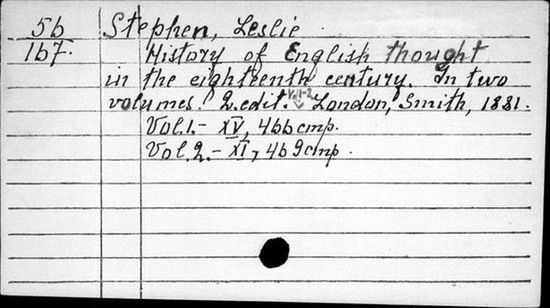 56 Stephen, Leslie.
167. History of English thought
in the eighteenth century. In two
volumes. 2.edit. Vol.1-2 London, Smith, 1881.
Vol.1.- XV, 466 cmp.
Vol.2.- XI, 469 cmp.